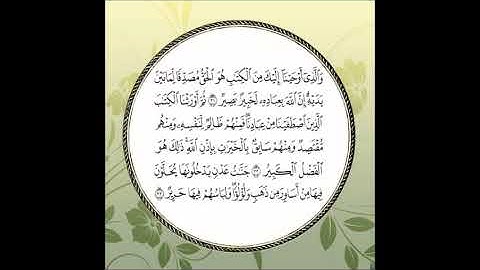 وَالَّذِىٓ أَوْحَيْنَآ إِلَيْكَ مِنَ ٱلْكِتَٰبِ هُوَ ٱلْحَقُّ مُصَدِّقًا لِّمَا بَيْنَ
يَدَيْهِ إِنَّ ٱللَّهَ بِعِبَادِهِۦ لَخَبِيرٌۢ بَصِيرٌ ۝٣١ ثُمَّ أَوْرَثْنَا ٱلْكِتَٰبَ
ٱلَّذِينَ ٱصْطَفَيْنَا مِنْ عِبَادِنَا فَمِنْهُمْ ظَالِمٌ لِّنَفْسِهِۦ وَمِنْهُم
مُّقْتَصِدٌ وَمِنْهُمْ سَابِقٌۢ بِٱلْخَيْرَٰتِ بِإِذْنِ ٱللَّهِ ذَٰلِكَ هُوَ
ٱلْفَضْلُ ٱلْكَبِيرُ ۝٣٢ جَنَّٰتُ عَدْنٍ يَدْخُلُونَهَا يُحَلَّوْنَ
فِيهَا مِنْ أَسَاوِرَ مِن ذَهَبٍ وَلُؤْلُؤًا وَلِبَاسُهُمْ فِيهَا حَرِيرٌ ۝٣٣